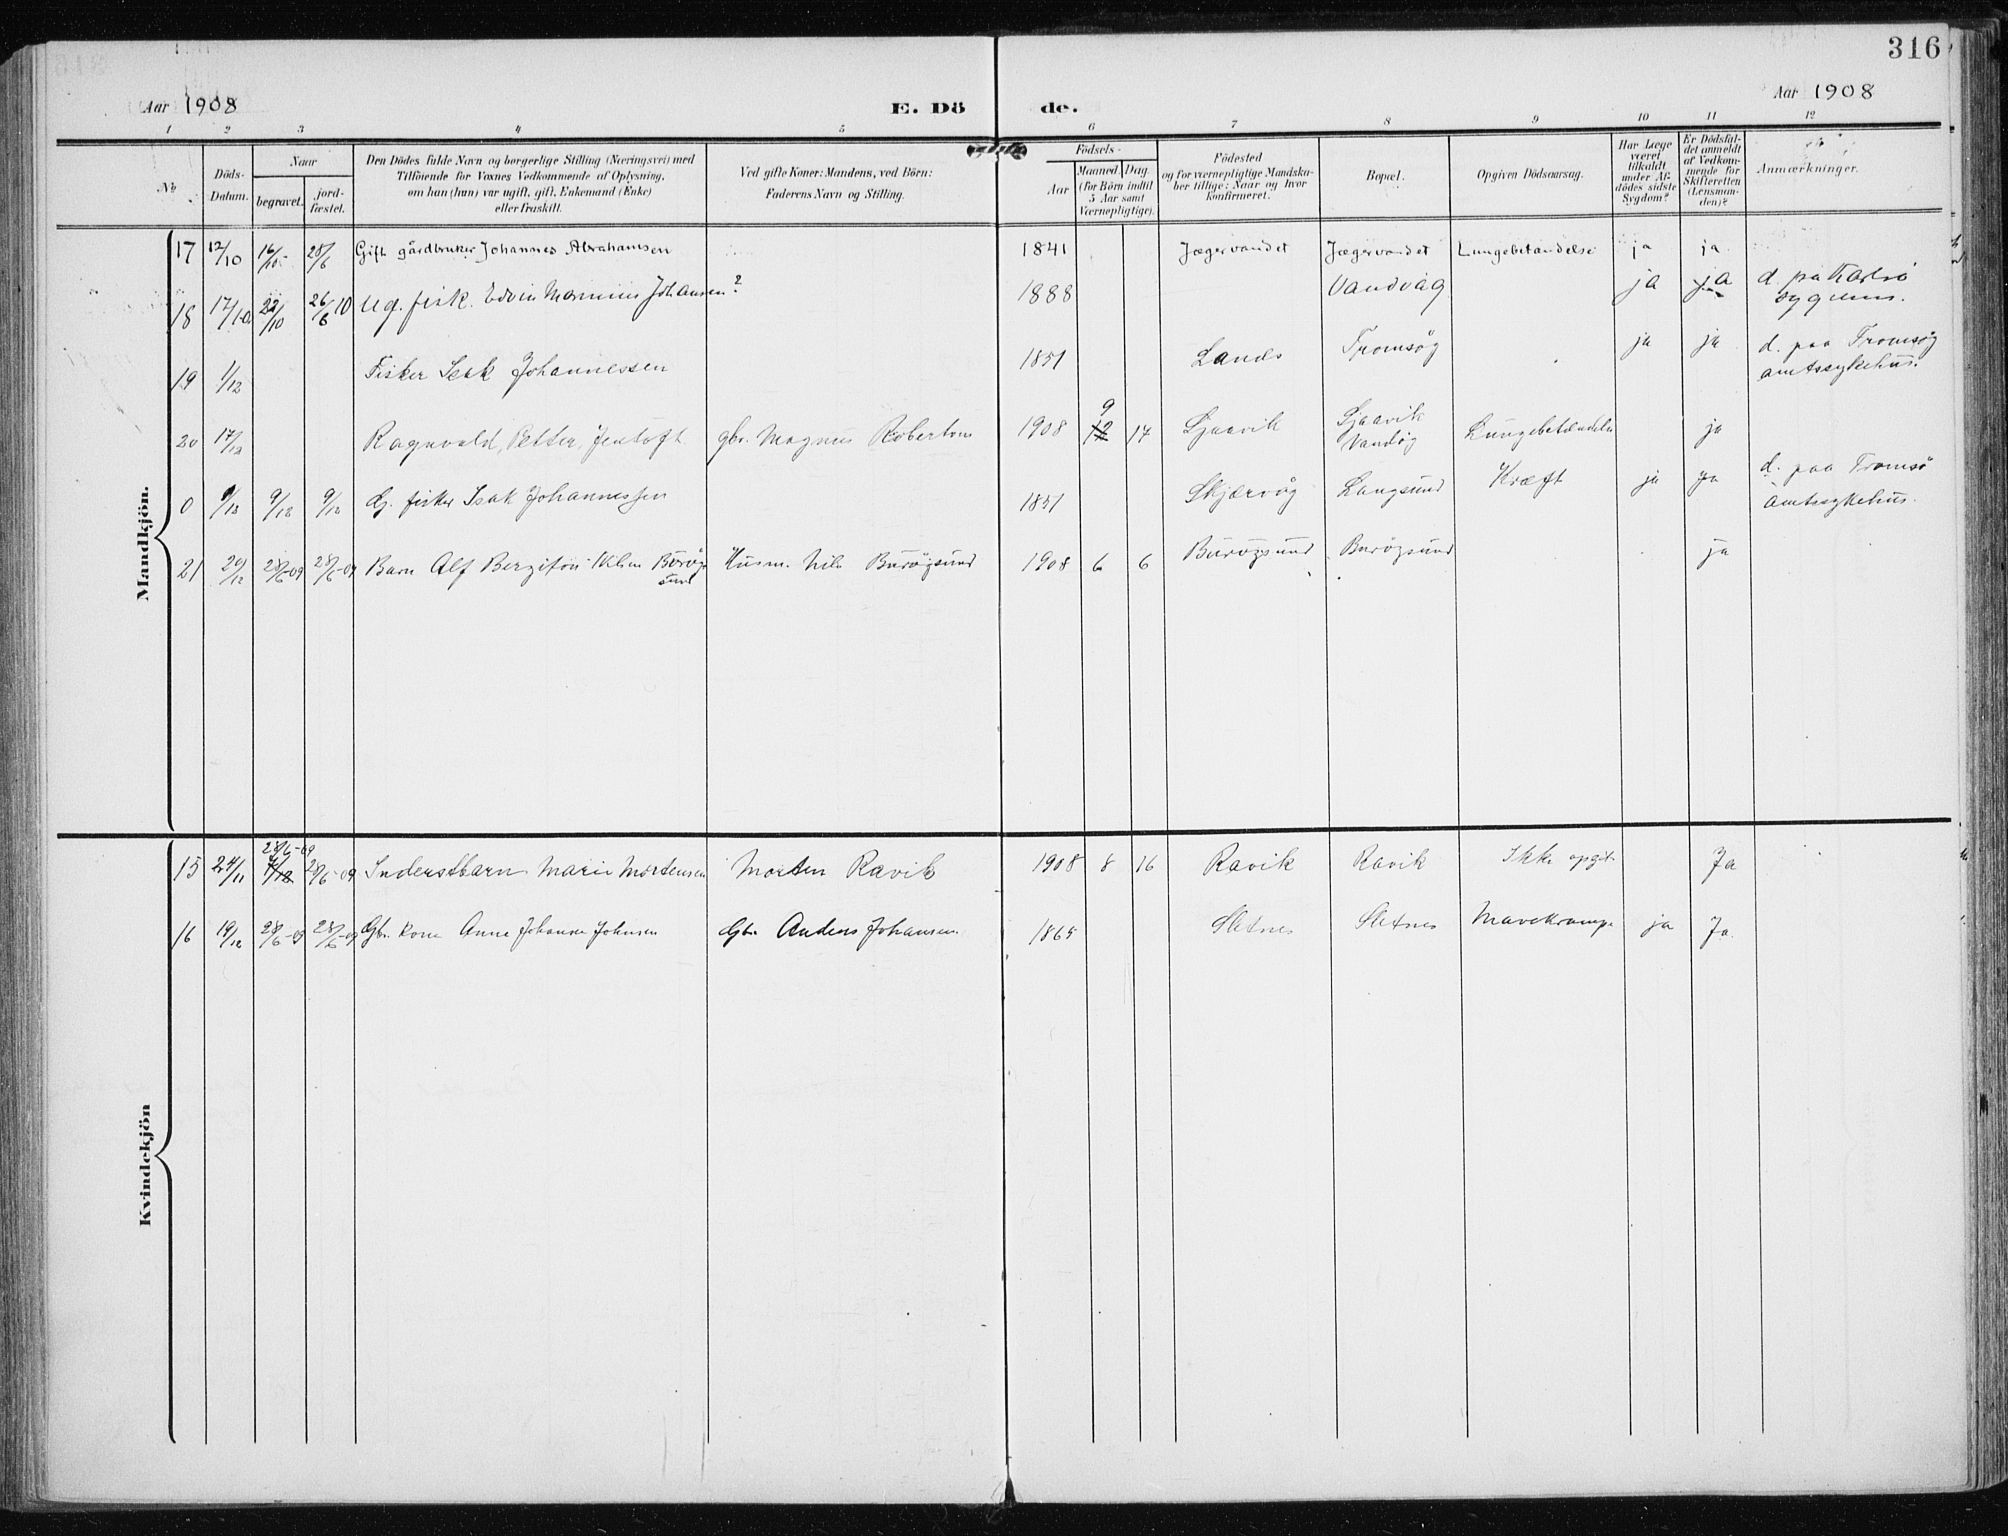 316
Aar 1908 E. Dö de. Aar 1908
1 2 3 4 5 6 7 8 9 10 11 12
№
Döds-Datum.
Naar
begravet.
jord-fæstet.
Den Dödes fulde Navn og borgerlige Stilling (Næringsvei) med
Tilföiende for Voxnes Vedkommende af Oplysning,
om han (hun) var ugift, gift, Enkemand (Enke)
eller fraskilt.
Ved gifte Koner: Mandens, ved Börn:
Faderens Navn og Stilling.
Födsels-
Aar
Maaned. Dag.
(for Börn indtil
5 Aar samt
Værnepligtige).
Födested
og for værnepligtige Mandska-
ber tillige: Naar og hvor
konfirmeret.
Bopæl.
Opgiven Dödsaarsag.
Har Læge
været
tilkaldt
under Af-
dödes sidste
Sygdom?
Er Dödsfal-
det anmeldt
af Vedkom-
mende for
Skifteretten
(Lensman-
den)?
Anmærkninger.
Mandkjön.
17 12/10 16/10 28/6 Gift gårdbruker Johannes Abrahamsen 1841 Jægervandet Jægervandet Lungebetændelse ja ja
18 17/10 22/10 26/6 10 Ug. fisk. Edvin Marinius Johansen? 1888 Vandvåg ja ja d. på Karlsö
sygehus.
19 1/12 Fisker Isak Johannessen 1851 Tromsög ja ja d. paa Tromsög
amtssykehus.
20 17/12 Ragnvald, Petter, Jentoft gbr. Magnus Robertsen 1908 9 12 17 Ljaavik Ljaavik
Vandög Lungebetændelse ja
0 1/12 9/12 9/12 G. fisker Isak Johannessen 1851 Skjærvög Langsund Kræft ja ja d. paa Tromsö
Amtssykehus.
21 20/12 28/6-09 28/6-09 Barn Alf Bergiton Nilsen Burög
sund Husm. Nils Burögsund 1908 6 6 Burögsund Burögsund ja
Kvindekjön
15 24/11 28/6-09 28/6-09 Inderstbarn Marie Mortensen Morten Ravik 1908 8 16 Ravik Ravik Ikke opgit Ja
16 19/12 28/6-09 28/6-09 Gbr. kone Anne Johanne Johnsen Gbr. Anders Johansen 1865 Sletnes Sletnes Mavekrampe ja Ja.